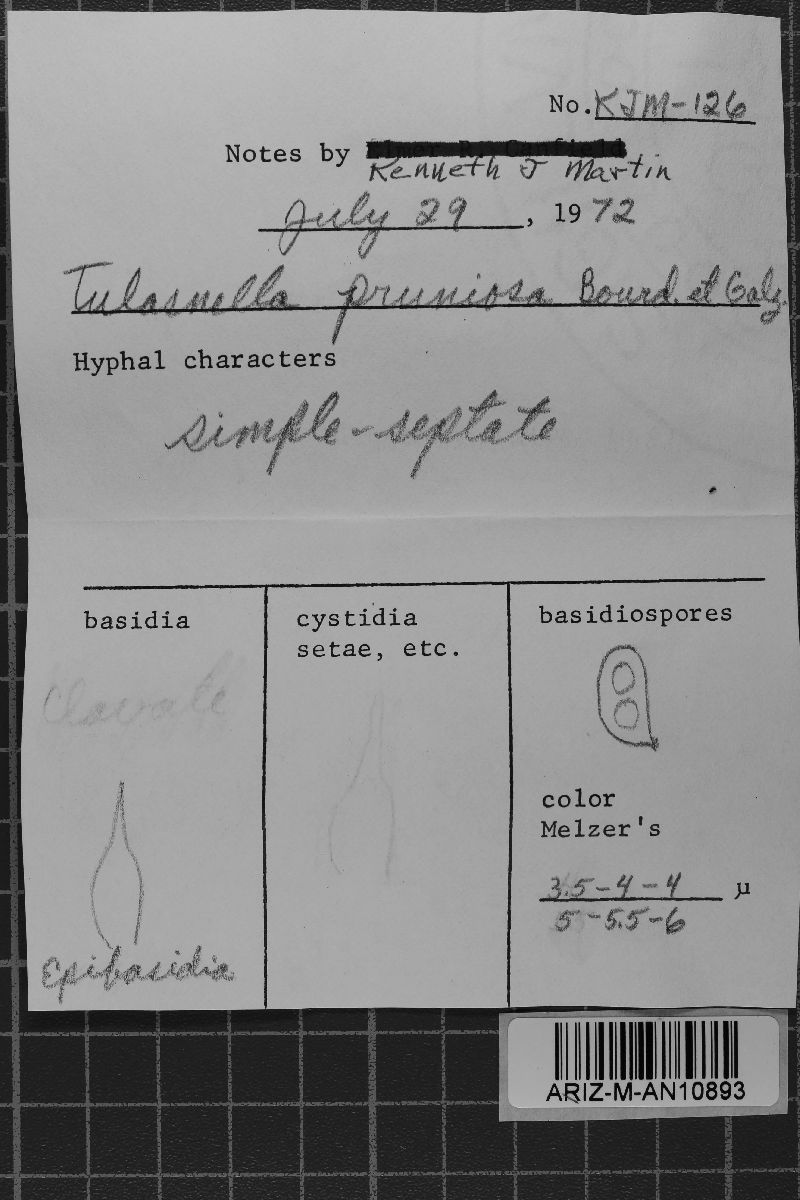 No. KJM-126
Notes by Elmer R. Canfield
Kenneth J Martin
July 29, 1972
Tulasnella pruniosa Bourd. et Galz.
Hyphal characters
simple-septate
basidia
clavate
Epibasidia
cystidia
setae, etc.
basidiospores
color
Melzer's
3.5-4-4 µ
5-5.5-6
ARIZ-M-AN10893